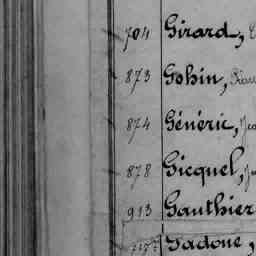 704 Girard,
873 Gohin,
874 Généric,
878 Gicquel,
913 Gauthier
Gadone,